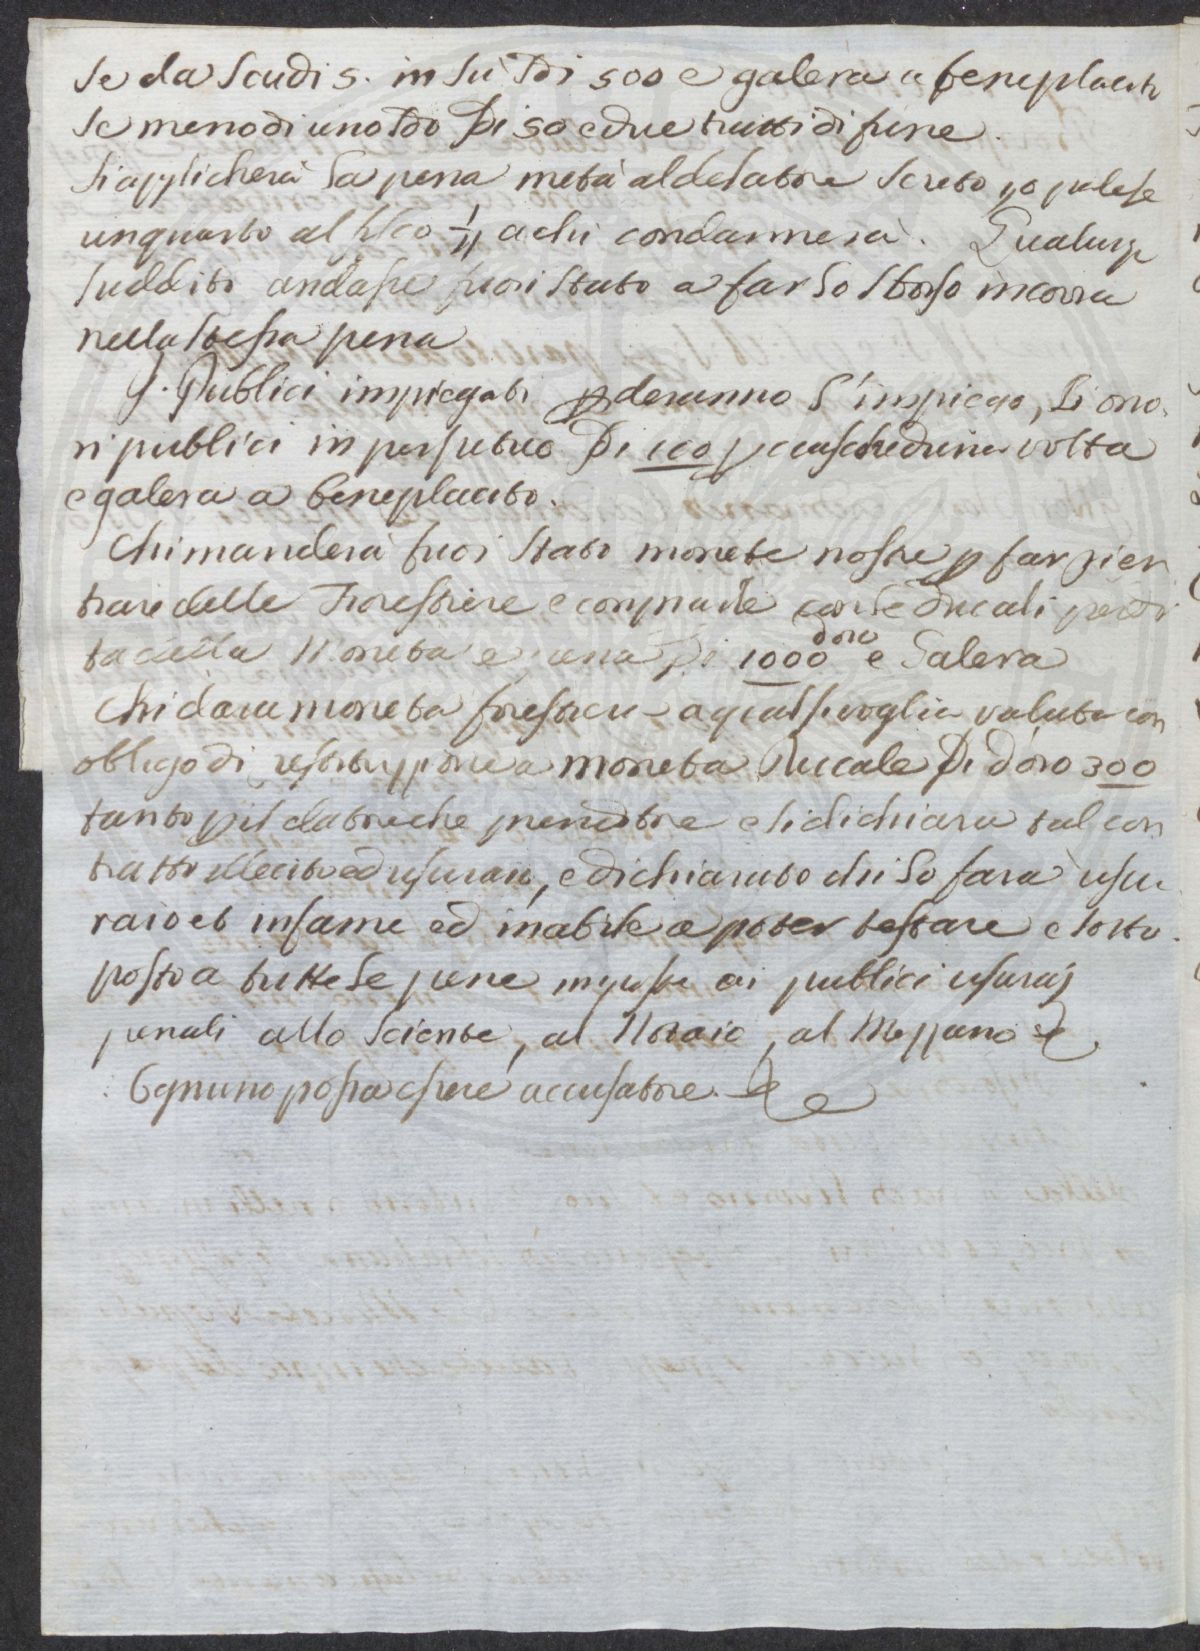 se da Scudi 5. in sù sdi 500 e galera a beneplacito
se meno di uno sdo Di 50 e due tratti di fune.
Si applicherà la pena metà al delatore screto o palese
un quarto al fisco 1/4 a chi condannerà. Qualunq
suddito andasse fuori Stato a far lo sborso incorra
nella stessa pena
I. Publici impiegati perderanno l'impiego, Li ono
ri publici in perpetuo Di 100 p ciascheduna volta
e galera a beneplacito.
Chi manderà fuori Stato monete nostre p far rien
trare delle Forestiere e comprarle con le Ducali perdi
ta della Moneta e pena Di 1000 doro e Galera
Chi darà moneta forestiera a qualsivoglia valuta con
obligo di restituzzione a moneta Ducale Di d'oro 300
tanto p il datore che prenditore e si dichiara tal con
tratto illecito ed usurario, e dichiarato chi lo farà usu
raio et infame ed inabile a poter testare e sotto
posto a tutte le pene imposte ai publici usuraj
penali allo Sciente, al Notaio, al Mezzano &
Ognuno possa essere accusatore.